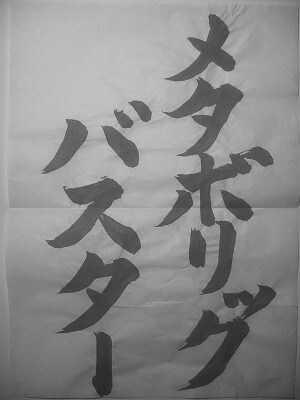 メタボリック
バスター